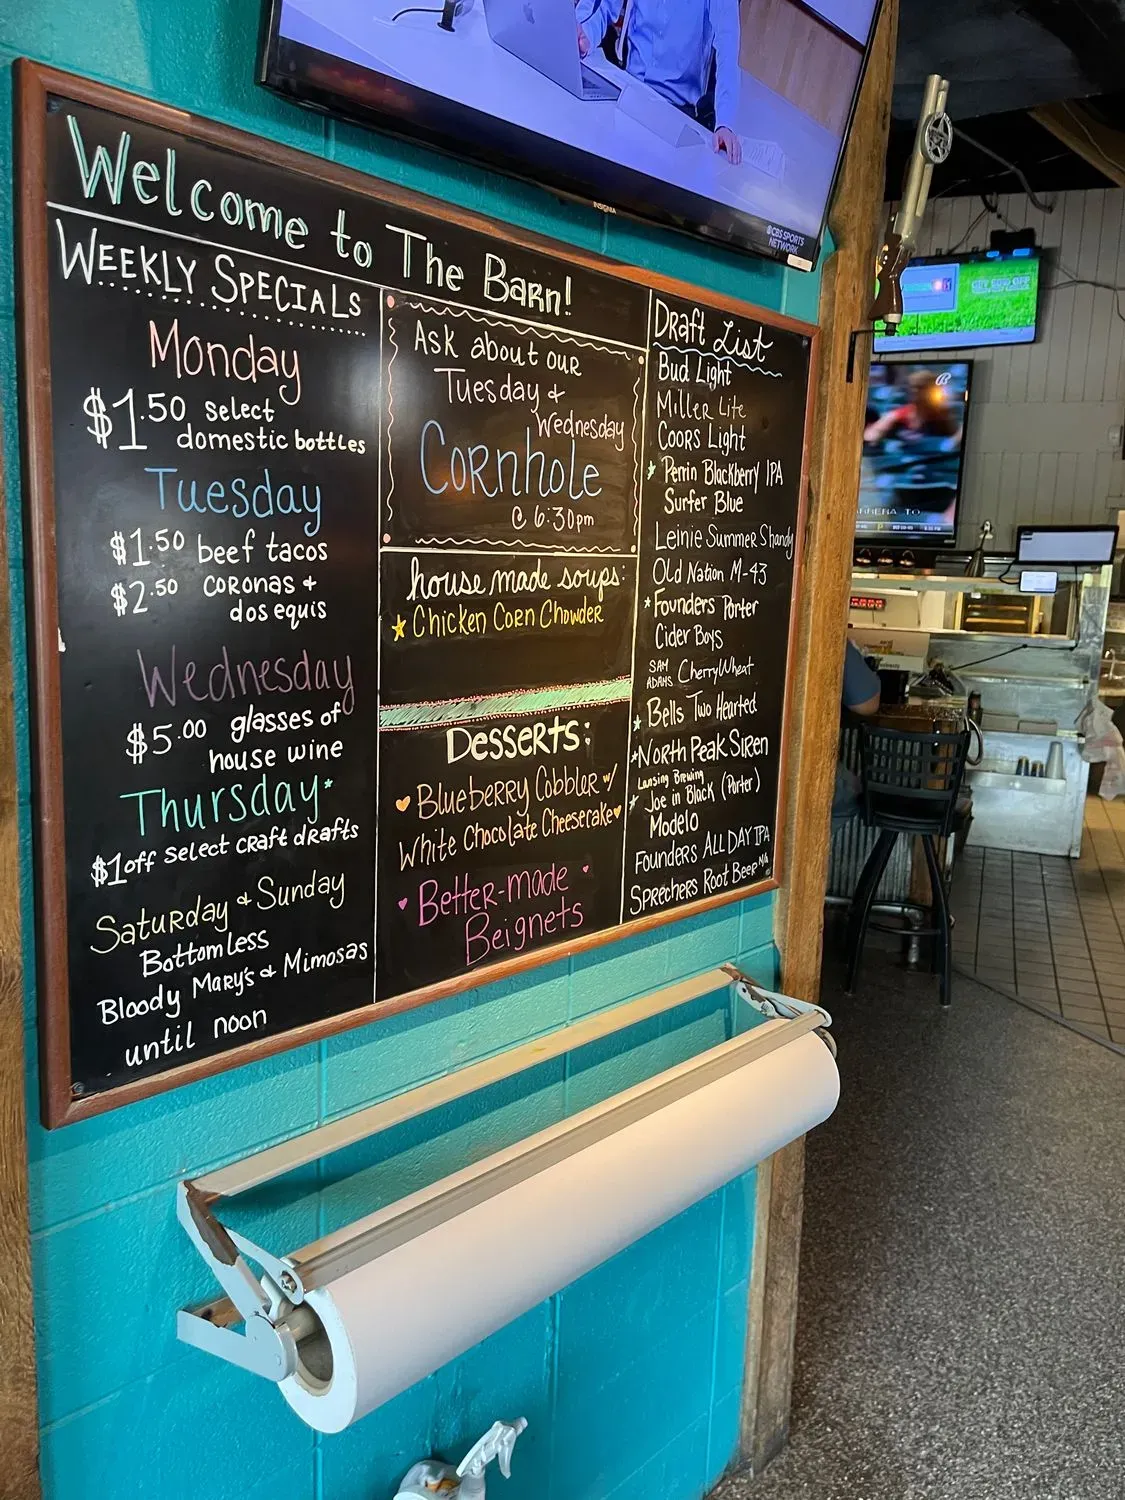 Welcome to The Barn!
WEEKLY SPECIALS
Monday
$1.50 select
domestic bottles
Tuesday
$1.50 beef tacos
$2.50 coronas +
dos equis
Wednesday
$5.00 glasses of
house wine
Thursday*
$1 off select craft drafts
Saturday & Sunday
Bottomless
Bloody Mary's & Mimosas
until noon
Ask about our
Tuesday &
Wednesday
Cornhole
@ 6:30pm
house made soups:
Chicken Corn Chowder
Desserts:
Blueberry Cobbler w/
White Chocolate Cheesecake
Better-made
Beignets
Draft List
Bud Light
Miller Lite
Coors Light
* Perrin Blackberry IPA
Surfer Blue
Leinie Summer Shandy
Old Nation M-43
* Founders Porter
Cider Boys
SAM ADAMS Cherry Wheat
* Bells Two Hearted
* North Peak Siren
Lansing Brewing
* Joe in Black (Porter)
Modelo
Founders ALL DAY IPA
Sprechers Root Beer N/A
INSIGNIA
CBS SPORTS
NETWORK